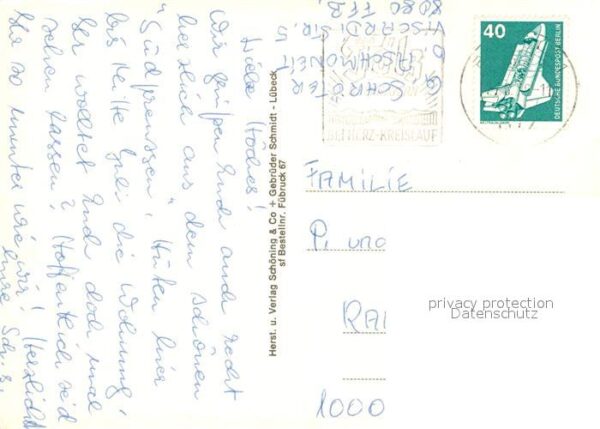 Liebe
Wir grüßen Euch auch recht
herzlich aus dem schönen
"Südpreussen". Hüten hier
bis Mitte Juli die Wohnung!
Ihr wolltet Euch doch mal
sehen lassen? Hoffentlich seid
Ihr so munter wie wir! Herzlichst
Eure
G. SCHRÖTER
VISCARDISTR. 5
8080 FFB
Herst. u. Verlag Schöning & Co + Gebrüder Schmidt - Lübeck
sf Bestellnr. Fübruck 67
BEI HERZ-KREISLAUF
40
DEUTSCHE BUNDESPOST BERLIN
FAMILIE
P. UND
RAI
1000
privacy protection
Datenschutz